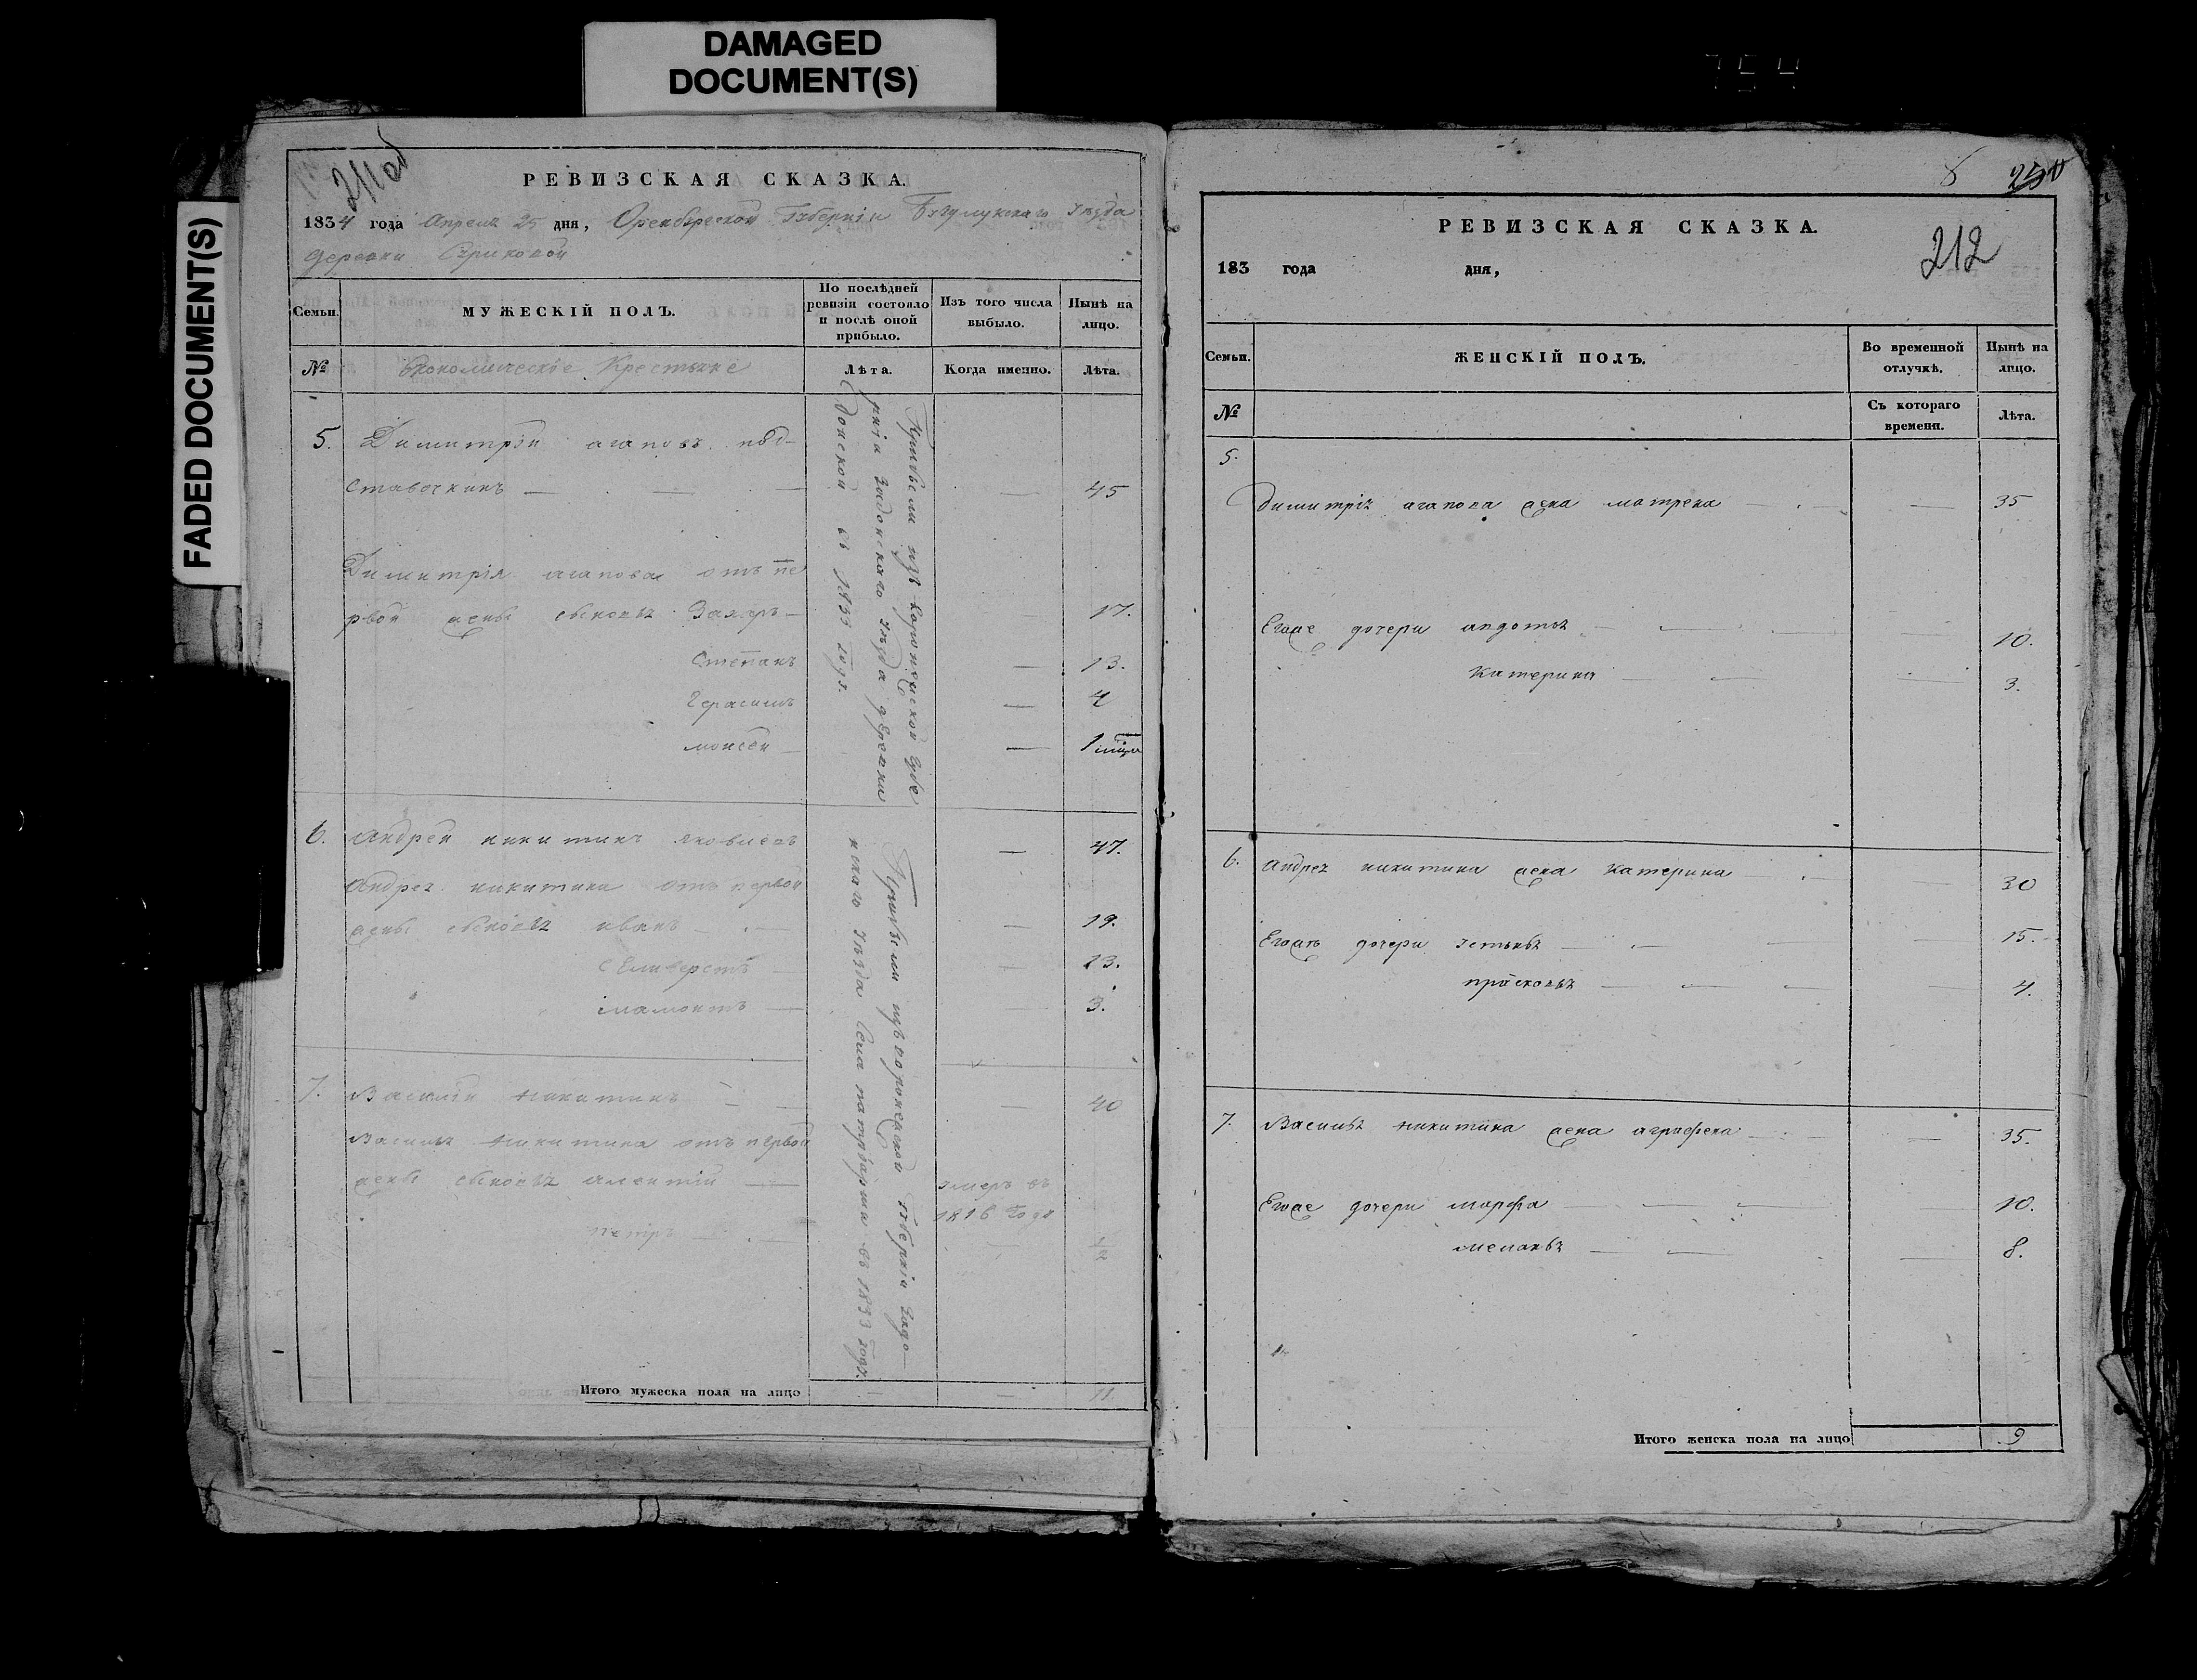 DAMAGED
DOCUMENT(S)
FADED DOCUMENT(S)
211об
РЕВИЗСКАЯ СКАЗКА.
1834 года Апреля 25 дня, Оренбургской Губернии Бузулукскаго уезда
деревни
Семьи.
МУЖЕСКІЙ ПОЛЪ.
По послѣдней
ревизіи состояло
и послѣ оной
прибыло.
Изъ того числа
выбыло.
Нынѣ на
лицо.
№
Экономическіе Крестьяне
Лѣта.
Когда именно.
Лѣта.
5. Димитрій агаповъ под-
ставочкинъ — 45
Димитрія агапова отъ пе
рвой жены сыновья Захаръ — 17.
Степанъ — 13.
Герасимъ — 4
моисей — 1
Прибыли изъ воронежской губе
рніи задонскаго уезда деревни
донской въ 1833 году.
6. Андрей никитинъ яковлевъ — 47.
Андрея никитина отъ первой
жены сыновья иванъ — 19.
Селиверстъ — 13.
мамонтъ — 3.
7. Василій никитинъ — 40
Василья никитина отъ первой
жены сыновья
умеръ въ
1816 году
петръ — 1/2
Прибыли изъ воронежской губерніи задо-
нскаго уезда Села въ 1833 году.
Итого мужеска пола на лицо — — 11.
8 250
212
РЕВИЗСКАЯ СКАЗКА.
183 года дня,
Семьи.
ЖЕНСКІЙ ПОЛЪ.
Во временной
отлучкѣ.
Нынѣ на
лицо.
№
Съ котораго
времени.
Лѣта.
5.
Димитрія агапова жена матрена — 35
Егоже дочери авдотья — 10.
Катерина — 3.
6. Андрея никитина жена Катерина — 30
Егожъ дочери устинья — 15.
прасковья — 4.
7. Василья никитина жена аграфена — 35.
Егоже дочери марфа — 10.
меланья — 8.
Итого женска пола на лицо 9